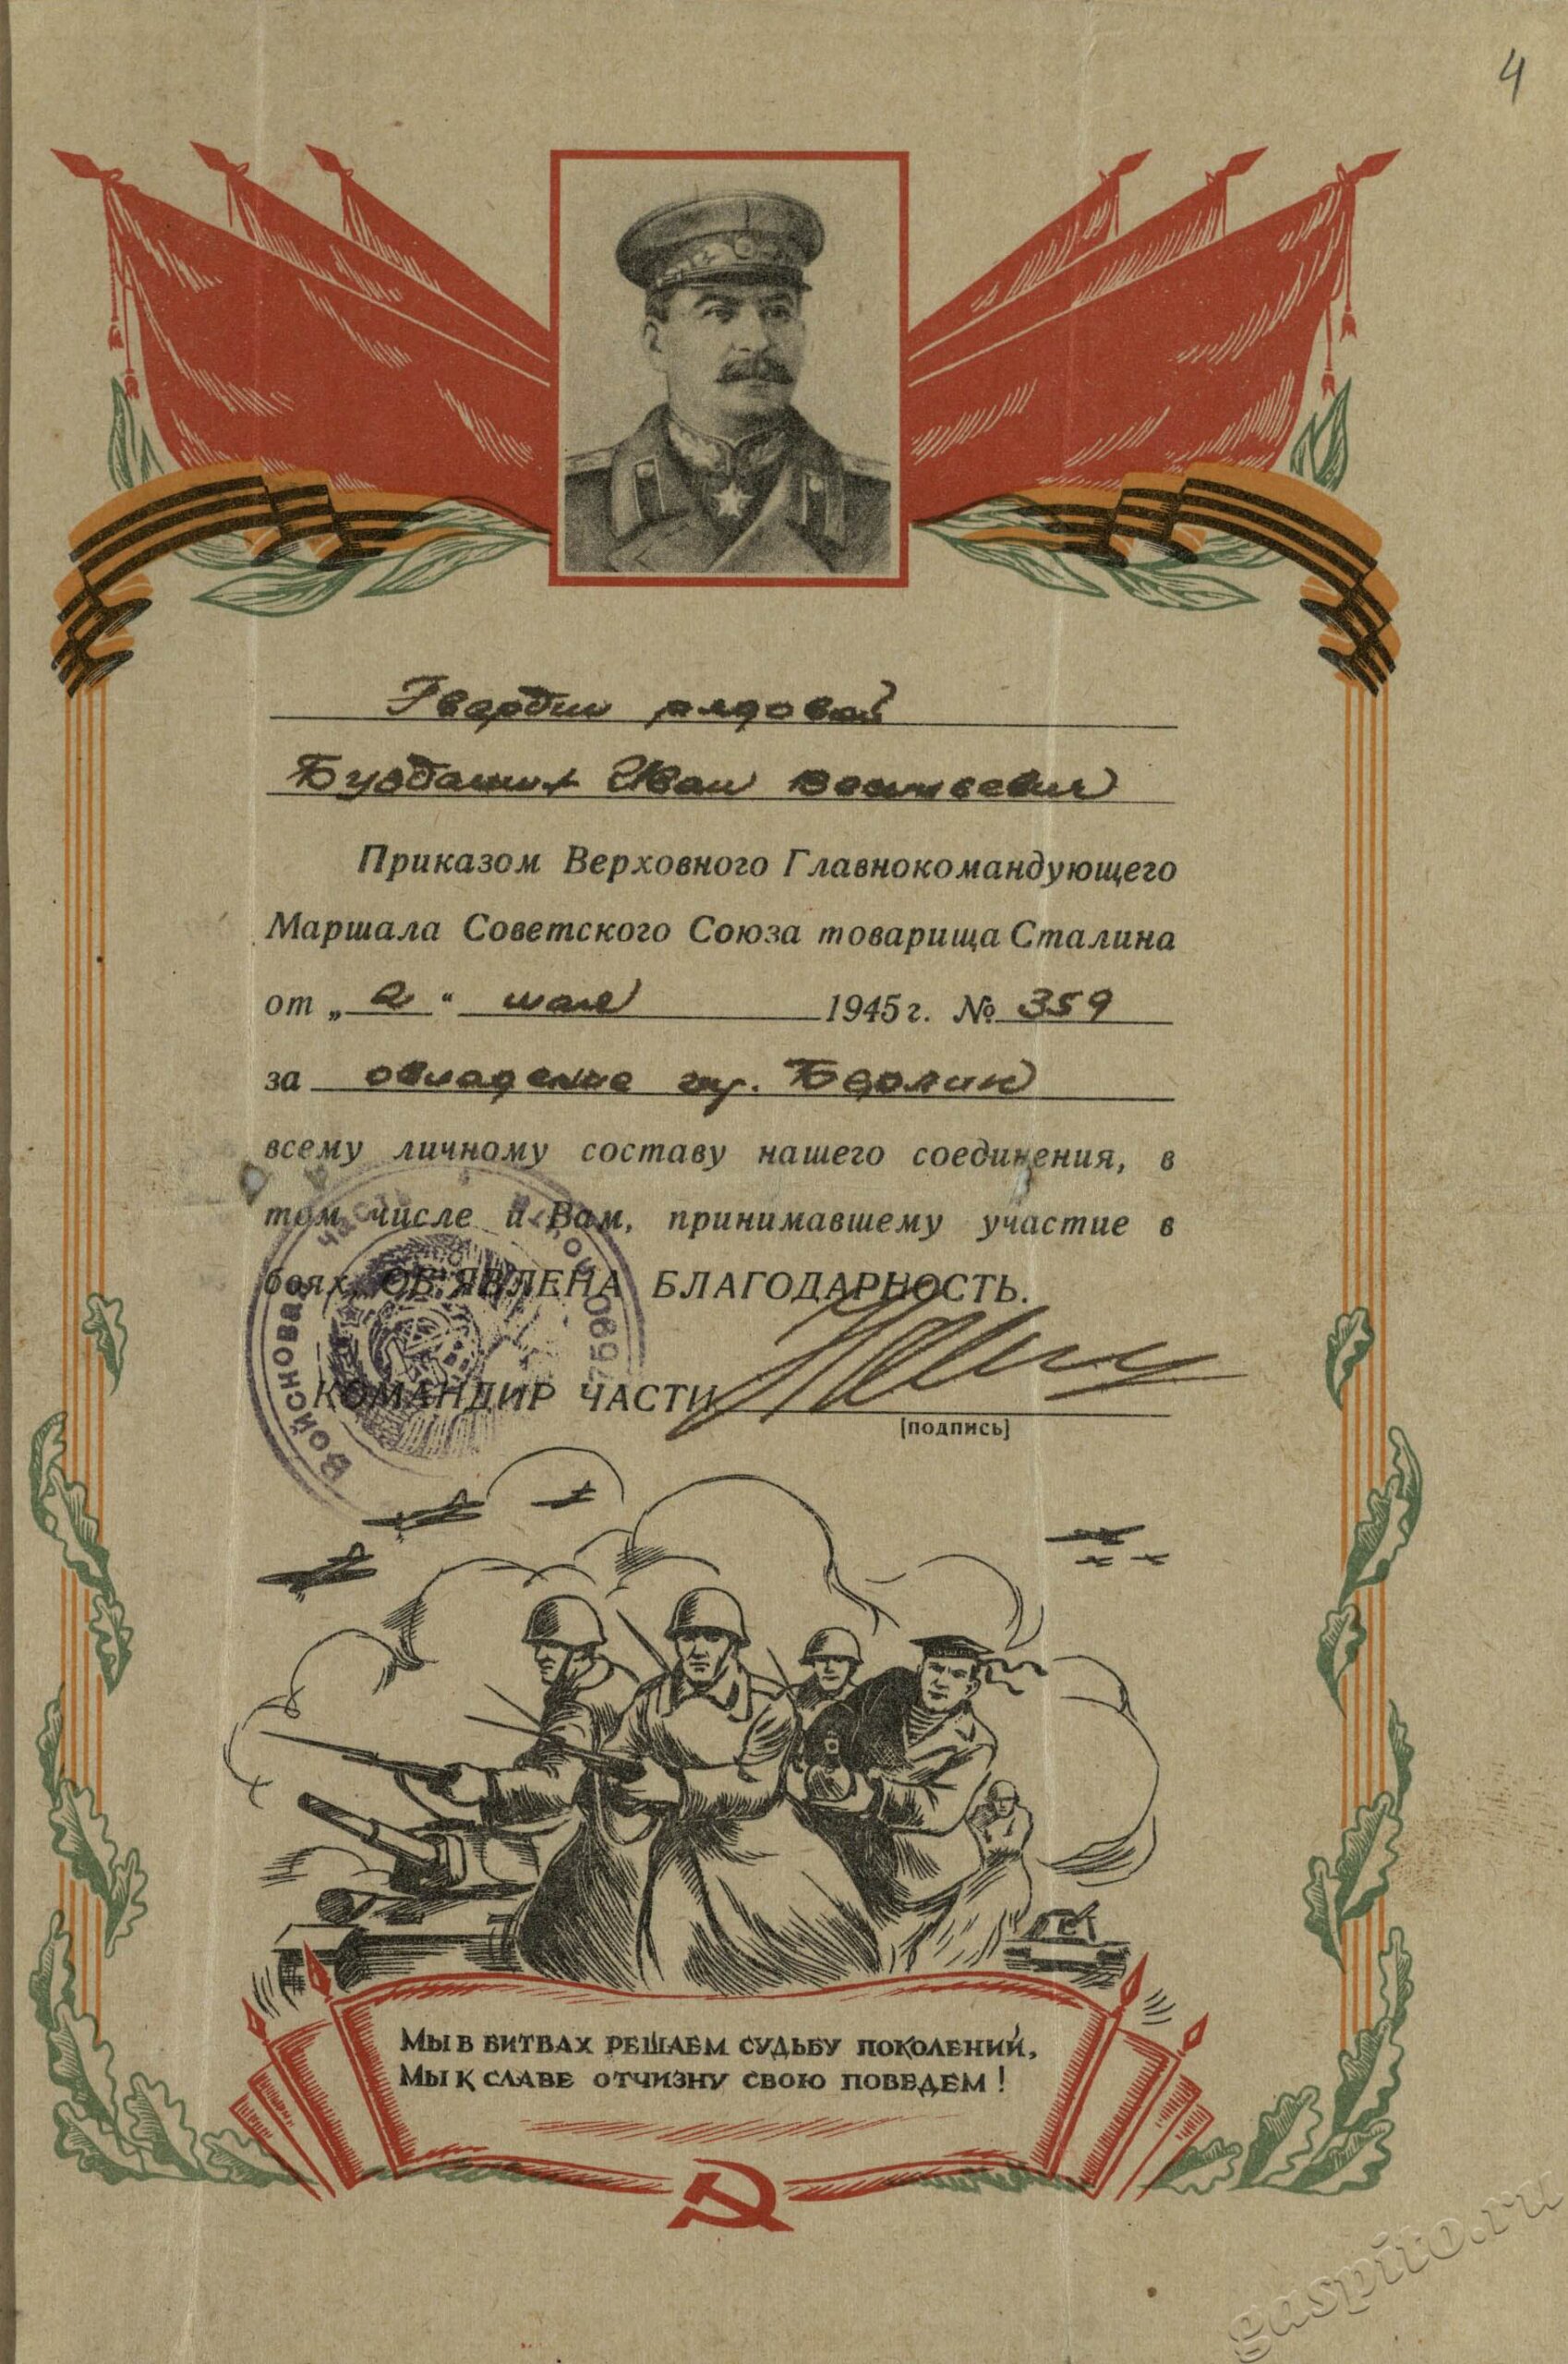 4
Гвардии рядовой
Иван Васильевич
Приказом Верховного Главнокомандующего
Маршала Советского Союза товарища Сталина
от „2“ мая 1945 г. № 359
за овладение гор. Берлин
всему личному составу нашего соединения, в
том числе и Вам, принимавшему участие в
боях, ОБ'ЯВЛЕНА БЛАГОДАРНОСТЬ.
Войсковая часть Полевая почта
КОМАНДИР ЧАСТИ
[подпись]
МЫ В БИТВАХ РЕШАЕМ СУДЬБУ ПОКОЛЕНИЙ,
МЫ К СЛАВЕ ОТЧИЗНУ СВОЮ ПОВЕДЕМ!
gaspito.ru